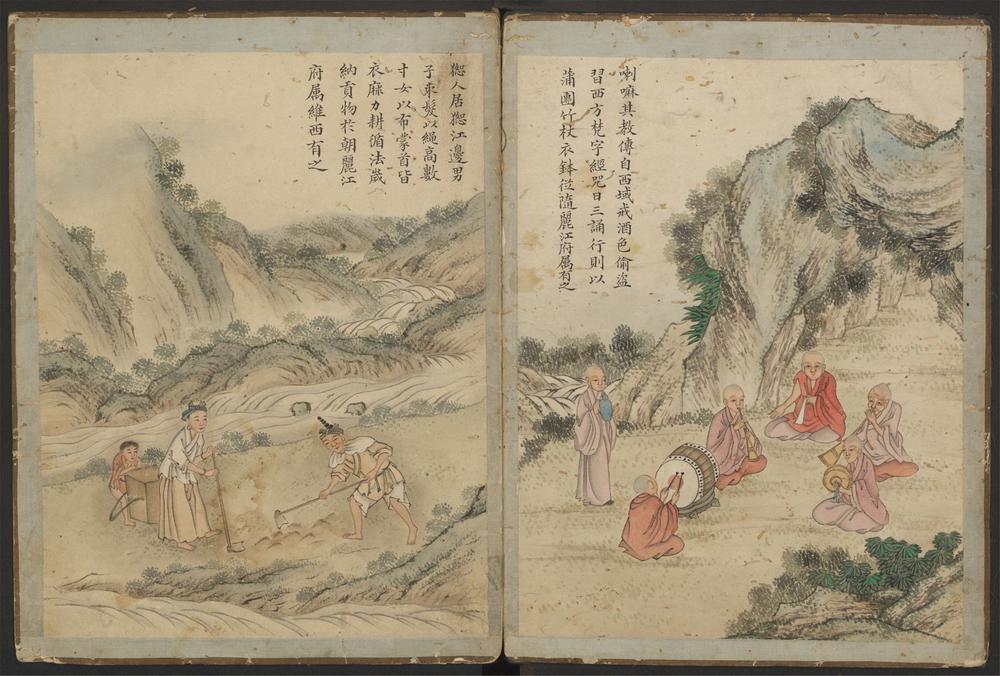 喇嘛其教傳自西域戒酒色偷盜
習西方梵字經咒日三誦行則以
蒲團竹杖衣鉢從隨麗江府屬有之
人居江邊男
子束髮以繩高數
寸女以布蒙首皆
衣麻力耕循法歲
納貢物於朝麗江
府屬維西有之